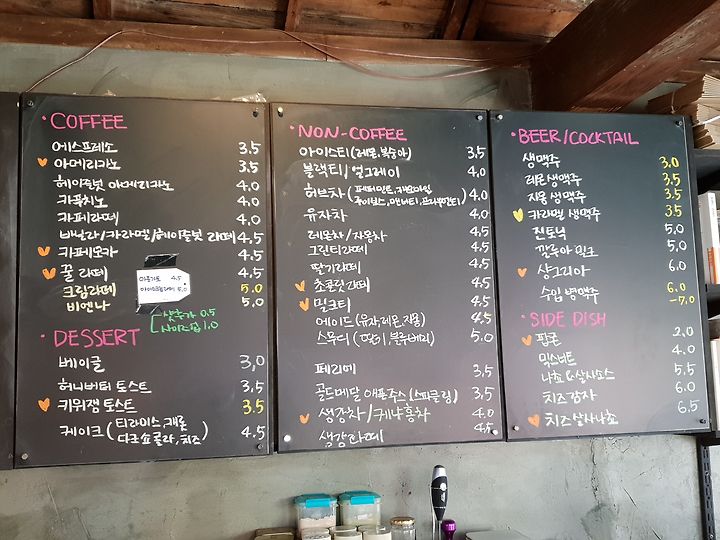 COFFEE
에스프레소 3.5
아메리카노 3.5
헤이즐넛 아메리카노 4.0
카푸치노 4.0
카페라떼 4.0
바닐라/카라멜/헤이즐넛 라떼 4.5
카페모카 4.5
꿀 라떼 4.5
크림라떼 5.0
비엔나 5.0
아포가토 4.5
아이스크림라떼 5.0
샷추가 0.5
사이즈업 1.0
DESSERT
베이글 3.0
허니버터 토스트 3.5
키위잼 토스트 3.5
케이크 (티라미스, 치즈) 4.5
NON-COFFEE
아이스티 (레몬, 복숭아) 3.5
블랙티/얼그레이 4.0
허브차 (페퍼민트, 캐모마일, 루이보스) 4.0
유자차 4.0
레몬차/자몽차 4.5
그린티라떼 4.5
딸기라떼 4.5
초콜릿라떼 4.5
밀크티 4.5
에이드 (유자, 레몬, 자몽) 4.5
스무디 (딸기, 블루베리) 5.0
페리에 3.5
골드메달 애플쥬스 (스파클링) 3.5
생강차/계냐홍차 4.0
생강라떼 4.5
BEER/COCKTAIL
생맥주 3.0
레몬 생맥주 3.5
자몽 생맥주 3.5
카라멜 생맥주 3.5
진토닉 5.0
깔루아 밀크 5.0
샹그리아 6.0
수입 병맥주 6.0
-7.0
SIDE DISH
팝콘 2.0
믹스너트 4.0
나쵸 & 살사소스 5.5
치즈감자 6.0
치즈살사나쵸 6.5